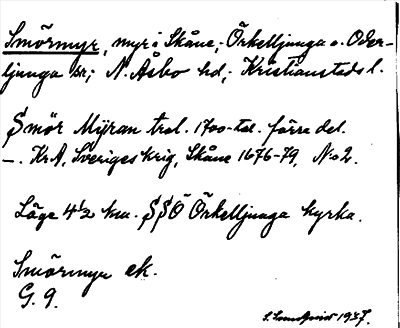 Smörmyr, myr i Skåne; Örkelljunga o. Oder-
ljunga sr; N. Åsbo hd; Kristianstads l.
Smör Myran trol. 1700-tal. förra del.
–. KrA, Sveriges krig, Skåne 1676-79, No 2.
Läge 4½ km. SSÖ Örkelljunga kyrka.
Smörmyr ek.
G. 9.
S. Lundqvist 1937.